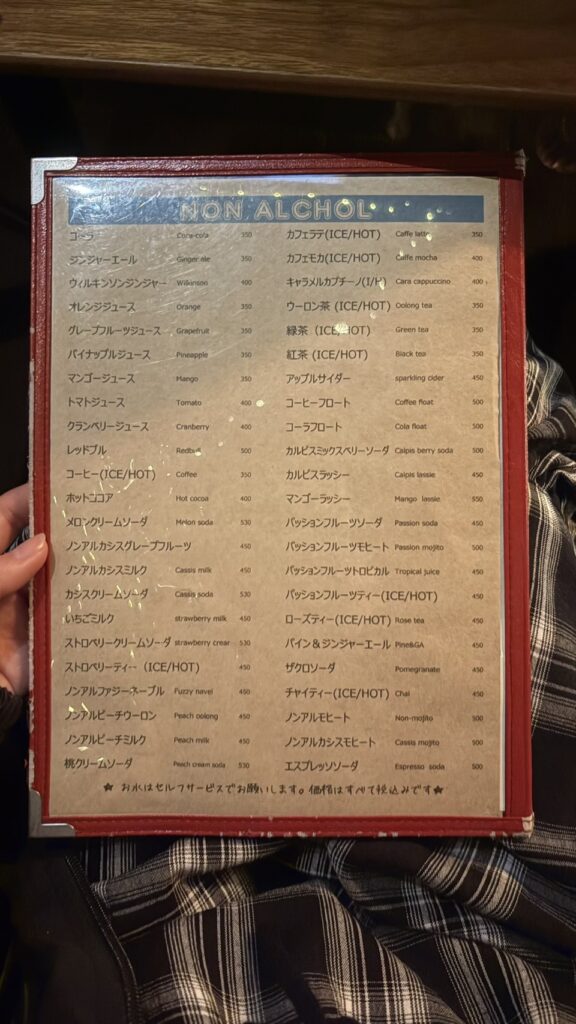 NON ALCHOL
コーラ Coca-cola 350
ジンジャーエール Ginger ale 350
ウィルキンソンジンジャー Wilkinson 400
オレンジジュース Orange 350
グレープフルーツジュース Grapefruit 350
パイナップルジュース Pineapple 350
マンゴージュース Mango 350
トマトジュース Tomato 400
クランベリージュース Cranberry 400
レッドブル Redbull 500
コーヒー(ICE/HOT) Coffee 350
ホットココア Hot cocoa 400
メロンクリームソーダ Melon soda 530
ノンアルカシスグレープフルーツ 450
ノンアルカシスミルク Cassis milk 450
カシスクリームソーダ Cassis soda 530
いちごミルク strawberry milk 450
ストロベリークリームソーダ strawberry crear 530
ストロベリーティー (ICE/HOT) 450
ノンアルファジーネーブル Fuzzy navel 450
ノンアルピーチウーロン Peach oolong 450
ノンアルピーチミルク Peach milk 450
桃クリームソーダ Peach cream soda 530
カフェラテ(ICE/HOT) Caffe latte 350
カフェモカ(ICE/HOT) Caffe mocha 400
キャラメルカプチーノ(I/H) Cara cappuccino 400
ウーロン茶 (ICE/HOT) Oolong tea 350
緑茶 (ICE/HOT) Green tea 350
紅茶 (ICE/HOT) Black tea 350
アップルサイダー sparkling cider 450
コーヒーフロート Coffee float 500
コーラフロート Cola float 500
カルピスミックスベリーソーダ Calpis berry soda 500
カルピスラッシー Calpis lassie 450
マンゴーラッシー Mango lassie 550
パッションフルーツソーダ Passion soda 450
パッションフルーツモヒート Passion mojito 500
パッションフルーツトロピカル Tropical juice 450
パッションフルーツティー(ICE/HOT) 450
ローズティー(ICE/HOT) Rose tea 450
パイン＆ジンジャーエール Pine&GA 450
ザクロソーダ Pomegranate 450
チャイティー(ICE/HOT) Chai 450
ノンアルモヒート Non-mojito 500
ノンアルカシスモヒート Cassis mojito 500
エスプレッソソーダ Espresso soda 500
★ お水はセルフサービスでお願いします。価格はすべて税込みです★